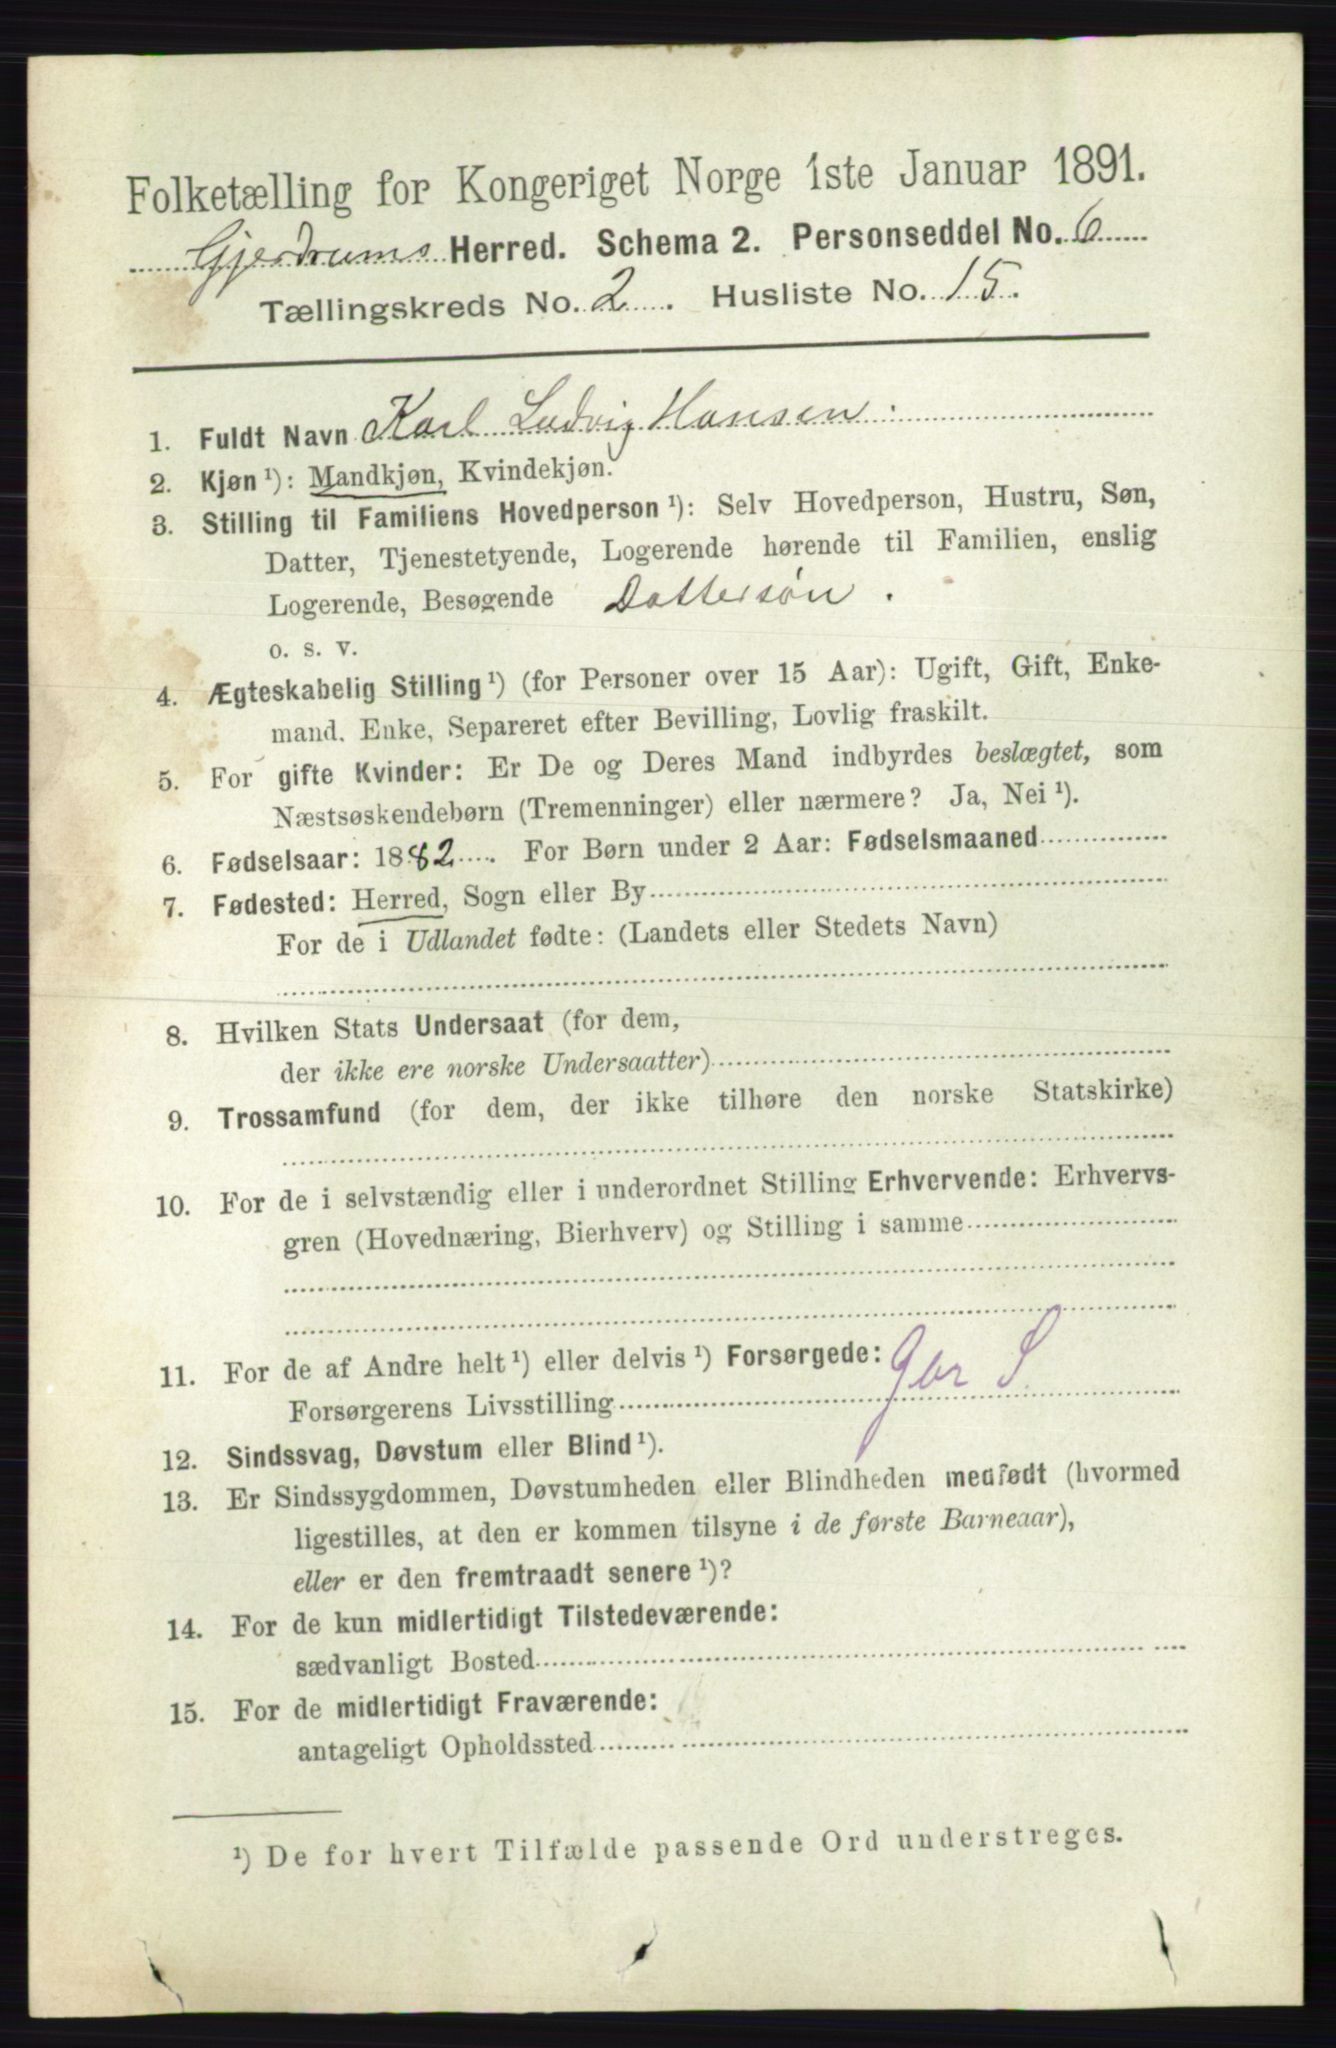 Folketælling for Kongeriget Norge 1ste Januar 1891.
Gjerdrums Herred. Schema 2. Personseddel No. 6
Tællingskreds No. 2. Husliste No. 15.
1. Fuldt Navn Karl Ludvig Hansen
2. Kjøn ¹): Mandkjøn, Kvindekjøn.
3. Stilling til Familiens Hovedperson ¹): Selv Hovedperson, Hustru, Søn,
Datter, Tjenestetyende, Logerende hørende til Familien, enslig
Logerende, Besøgende Dattersøn.
o. s. v.
4. Ægteskabelig Stilling ¹) (for Personer over 15 Aar): Ugift, Gift, Enke-
mand. Enke, Separeret efter Bevilling, Lovlig fraskilt.
5. For gifte Kvinder: Er De og Deres Mand indbyrdes beslægtet, som
Næstsøskendebørn (Tremenninger) eller nærmere? Ja, Nei ¹).
6. Fødselsaar: 1882. For Børn under 2 Aar: Fødselsmaaned
7. Fødested: Herred, Sogn eller By
For de i Udlandet fødte: (Landets eller Stedets Navn)
8. Hvilken Stats Undersaat (for dem,
der ikke ere norske Undersaatter)
9. Trossamfund (for dem, der ikke tilhøre den norske Statskirke)
10. For de i selvstændig eller i underordnet Stilling Erhvervende: Erhvervs-
gren (Hovednæring, Bierhverv) og Stilling i samme
11. For de af Andre helt ¹) eller delvis ¹) Forsørgede:
Forsørgerens Livsstilling
12. Sindssvag, Døvstum eller Blind ¹).
13. Er Sindssygdommen, Døvstumheden eller Blindheden medfødt (hvormed
ligestilles, at den er kommen tilsyne i de første Barneaar),
eller er den fremtraadt senere ¹)?
14. For de kun midlertidigt Tilstedeværende:
sædvanligt Bosted
15. For de midlertidigt Fraværende:
antageligt Opholdssted
¹) De for hvert Tilfælde passende Ord understreges.